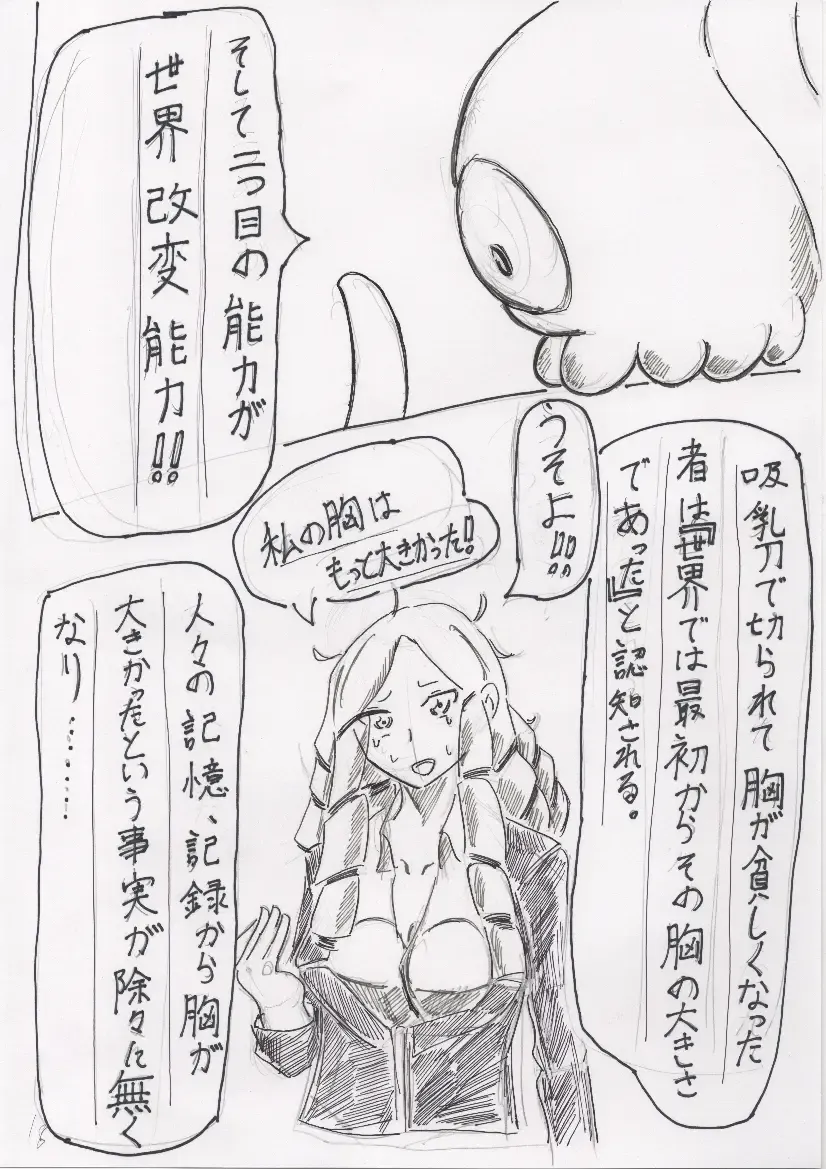 そして二つ目の能力が
世界改変能力!!
吸乳刀で切られて胸が貧しくなった
者は『世界では最初からその胸の大きさ
であった』と認知される。
うそよ!!
私の胸は
もっと大きかった!
人々の記憶、記録から胸が
大きかったという事実が除々に無く
なり……
18